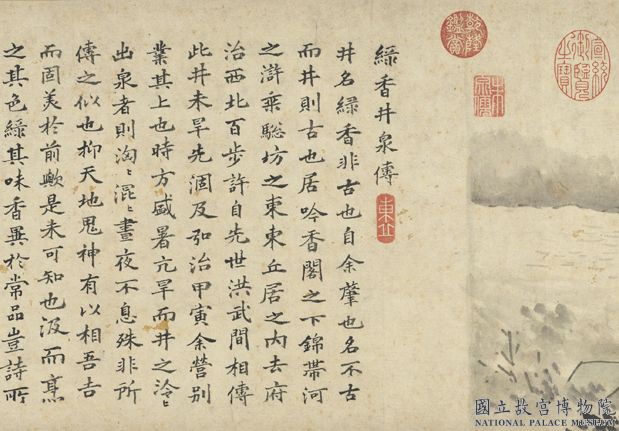 宣統御覽之寶
乾隆鑑賞
綠香井泉傳
東丘
井名綠香非古也自余肇也名不古
而井則古也居吟香閣之下錦帶河
之滸乘驄坊之東東丘居之內去府
治西北百步許自先世洪武間相傳
此井未旱先涸及弘治甲寅余營別
業其上也時方盛暑亢旱而井之泠〻
出泉者則洶〻混〻晝夜不息殊非所
傳之似也抑天地鬼神有以相吾吉
而固美於前歟是未可知也汲而烹
之其色綠其味香異於常品豈詩所
國立故宮博物院
NATIONAL PALACE MUSEUM